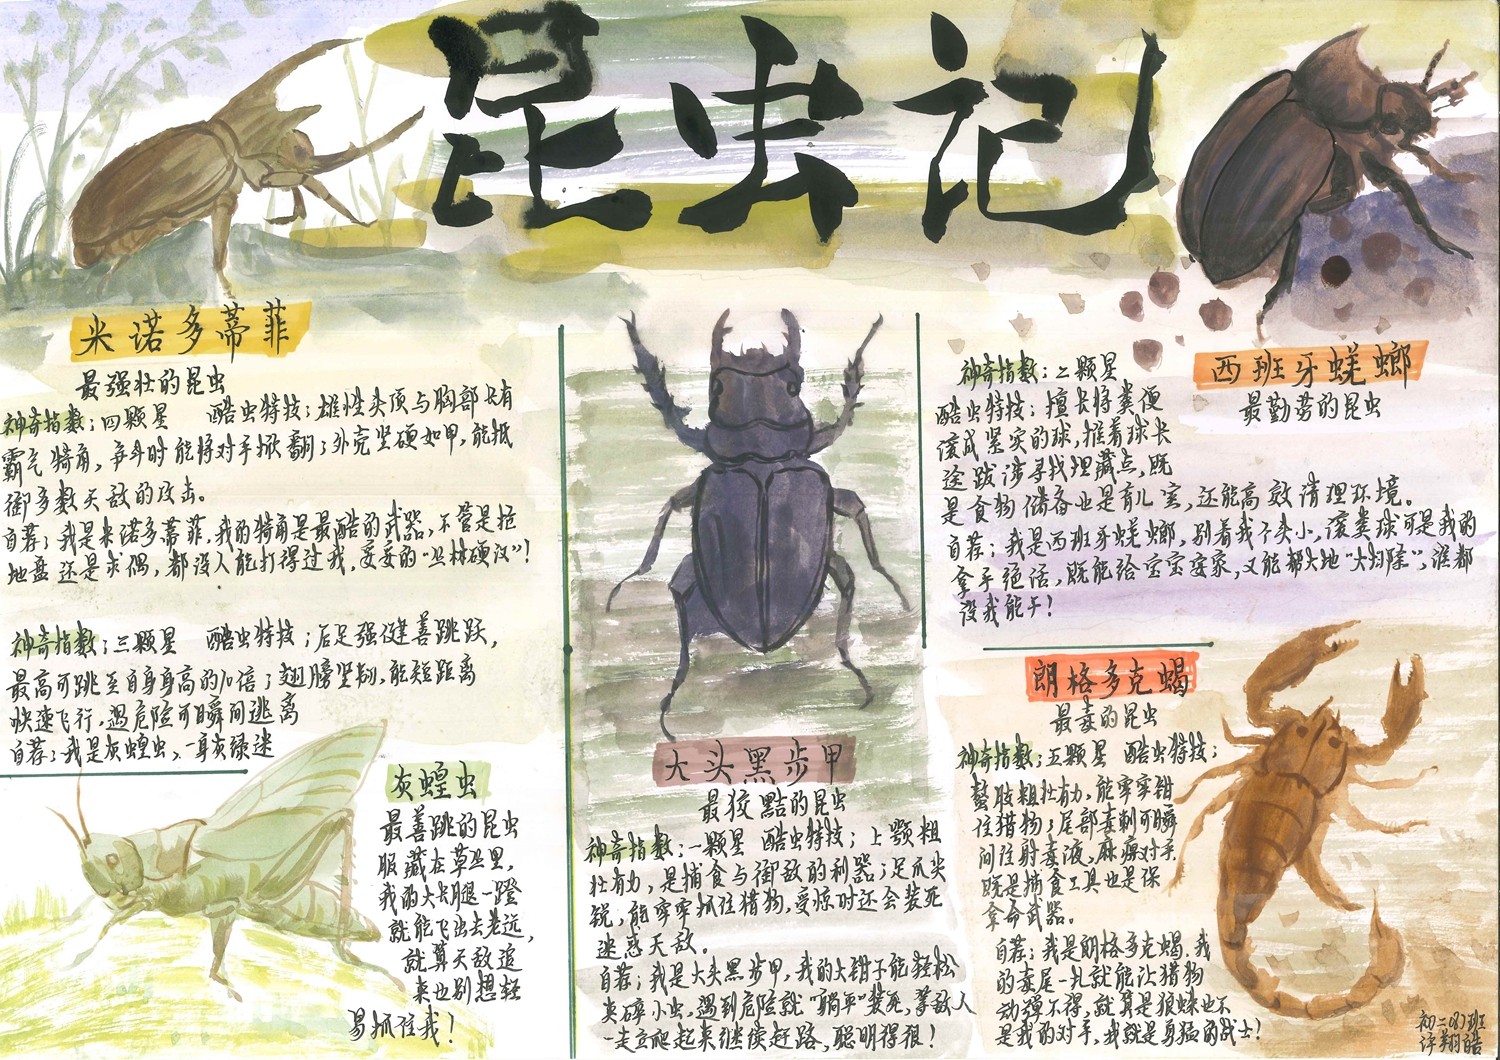 昆虫记
米诺多蒂菲
最强壮的昆虫
神奇指数：四颗星 酷虫特技：雄性头顶与胸部长有
霸气犄角，争斗时能将对手掀翻；外壳坚硬如甲，能抵
御多数天敌的攻击。
自荐：我是米诺多蒂菲，我的犄角是最酷的武器，不管是抢
地盘还是求偶，都没人能打得过我，妥妥的“丛林硬汉”！
神奇指数：三颗星 酷虫特技：后足强健善跳跃，
最高可跳至自身身高的10倍；翅膀坚韧，能短距离
快速飞行，遇危险可瞬间逃离
自荐：我是灰蝗虫，一身灰绿迷
灰蝗虫
最善跳的昆虫
服藏在草丛里，
我的大长腿一蹬
就能飞出去老远，
就算天敌追
来也别想轻
易抓住我！
大头黑步甲
最狡黠的昆虫
神奇指数：一颗星 酷虫特技：上颚粗
壮有力，是捕食与御敌的利器；足爪尖
锐，能牢牢抓住猎物，受惊时还会装死
迷惑天敌。
自荐：我是大头黑步甲，我的大钳子能轻松
夹碎小虫，遇到危险就“躺平”装死，等敌人
一走立爬起来继续赶路，聪明得很！
西班牙蜣螂
最勤劳的昆虫
神奇指数：三颗星
酷虫特技：擅长将粪便
滚成紧实的球，推着球长
途跋涉寻找埋藏点，既
是食物储备也是育儿室，还能高效清理环境。
自荐：我是西班牙蜣螂，别看我个头小，滚粪球可是我的
拿手绝活，既能给宝宝安家，又能帮大地“大扫除”，谁都
没我能干！
朗格多克蝎
最毒的昆虫
神奇指数：五颗星 酷虫特技：
螯肢粗壮有力，能牢牢钳
住猎物；尾部毒刺可瞬
间注射毒液，麻痹对手
既是捕食工具也是保
拿命武器。
自荐：我是朗格多克蝎，我
的毒尾一扎就能让猎物
动弹不得，就算是狼蛛也不
是我的对手，我就是勇猛的战士！